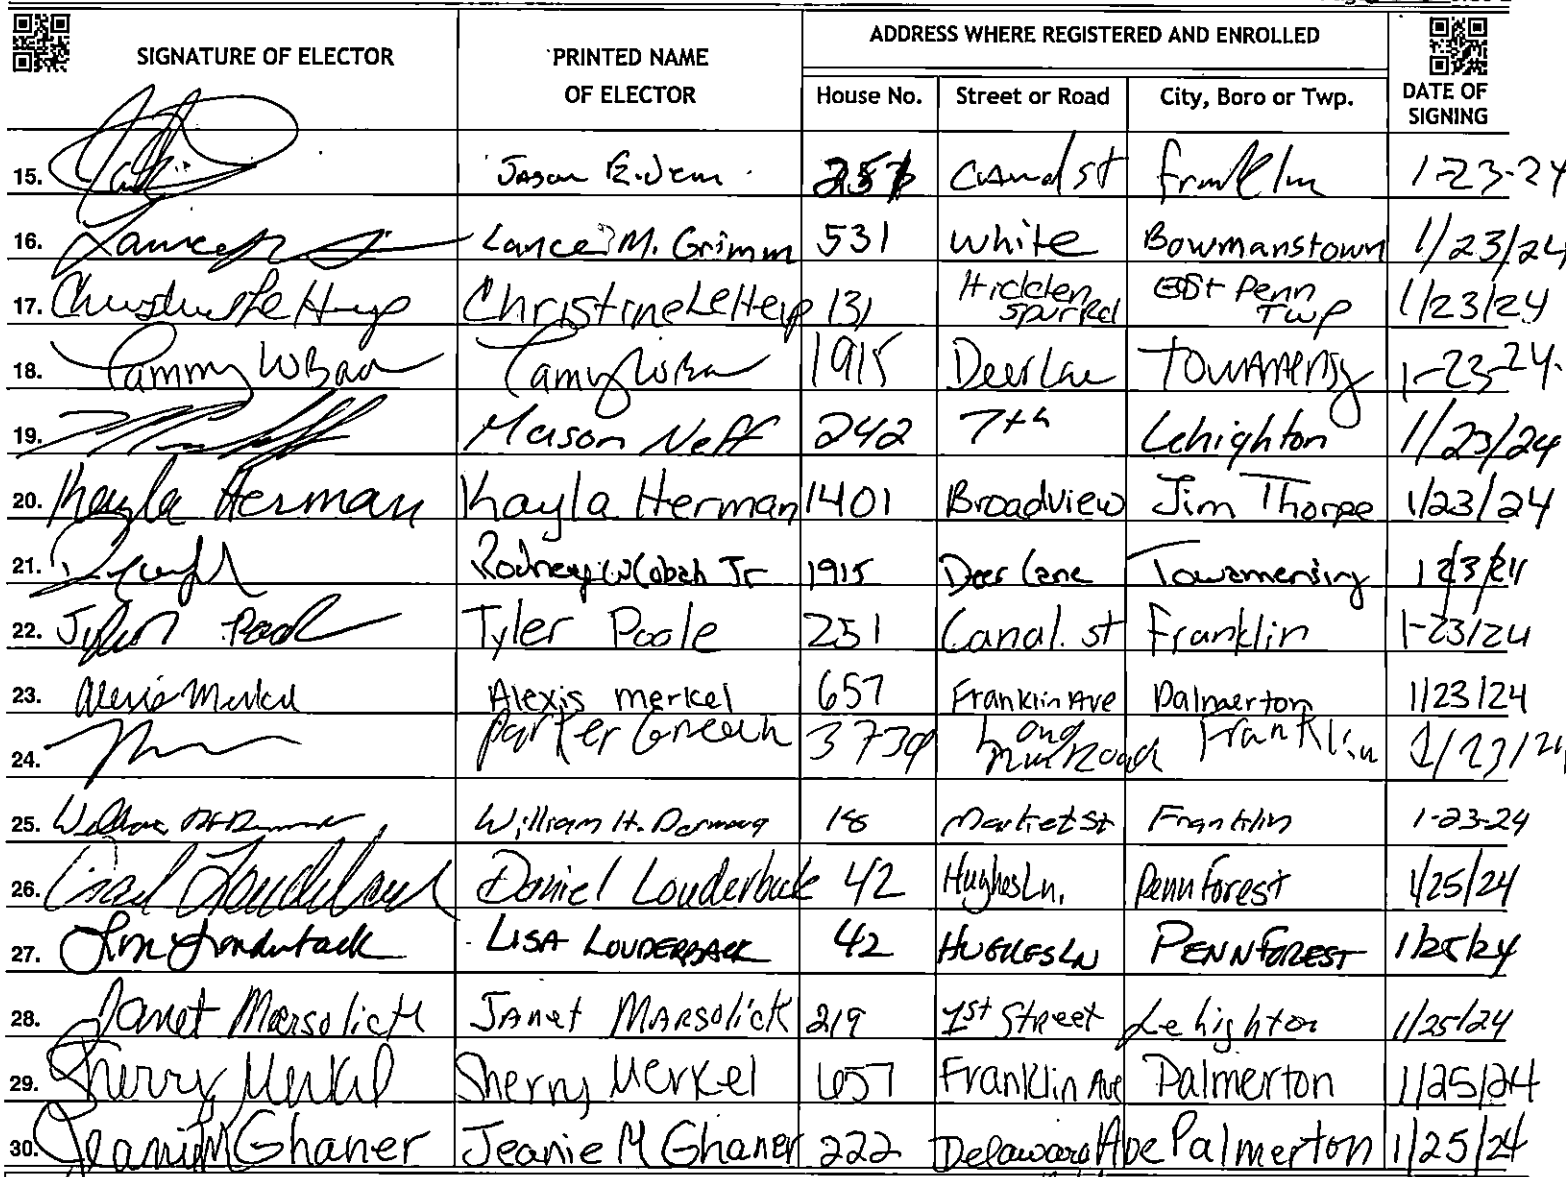 SIGNATURE OF ELECTOR PRINTED NAME OF ELECTOR ADDRESS WHERE REGISTERED AND ENROLLED DATE OF SIGNING
House No. Street or Road City, Boro or Twp.
15. Jason 251 Canal st Franklin 1-23-24
16. Lance M. Grimm 531 White Bowmanstown 1/23/24
17. Christine LeHeup 131 Hidden Spur Rd East Penn Twp 1/23/24
18. Tammy 1915 Deer Lane Towamensing 1-23-24
19. Mason Neff 242 7th Lehighton 1/23/24
20. Kayla Herman Kayla Herman 1401 Broadview Jim Thorpe 1/23/24
21. Rodney Jr 1915 Deer Lane Towamensing 1/23/24
22. Tyler Poole Tyler Poole 251 Canal. st Franklin 1-23/24
23. Alexis Merkel Alexis merkel 657 Franklin Ave Palmerton 1/23/24
24. Parker 3730 Long Run Road Franklin 1/23/24
25. William H. 18 Market St Franklin 1-23-24
26. Daniel Louderback 42 Hughes Ln. Penn Forest 1/25/24
27. Lisa Louderback LISA LOUDERBACK 42 HUGHES LN PENN FOREST 1/25/24
28. Janet Marsolick JANet MARSOLICK 219 1st Street Lehighton 1/25/24
29. Sherry Merkel Sherry Merkel 657 Franklin Ave Palmerton 1/25/24
30. Jeanie M Ghaner Jeanie M Ghaner 222 Delaware Ave Palmerton 1/25/24